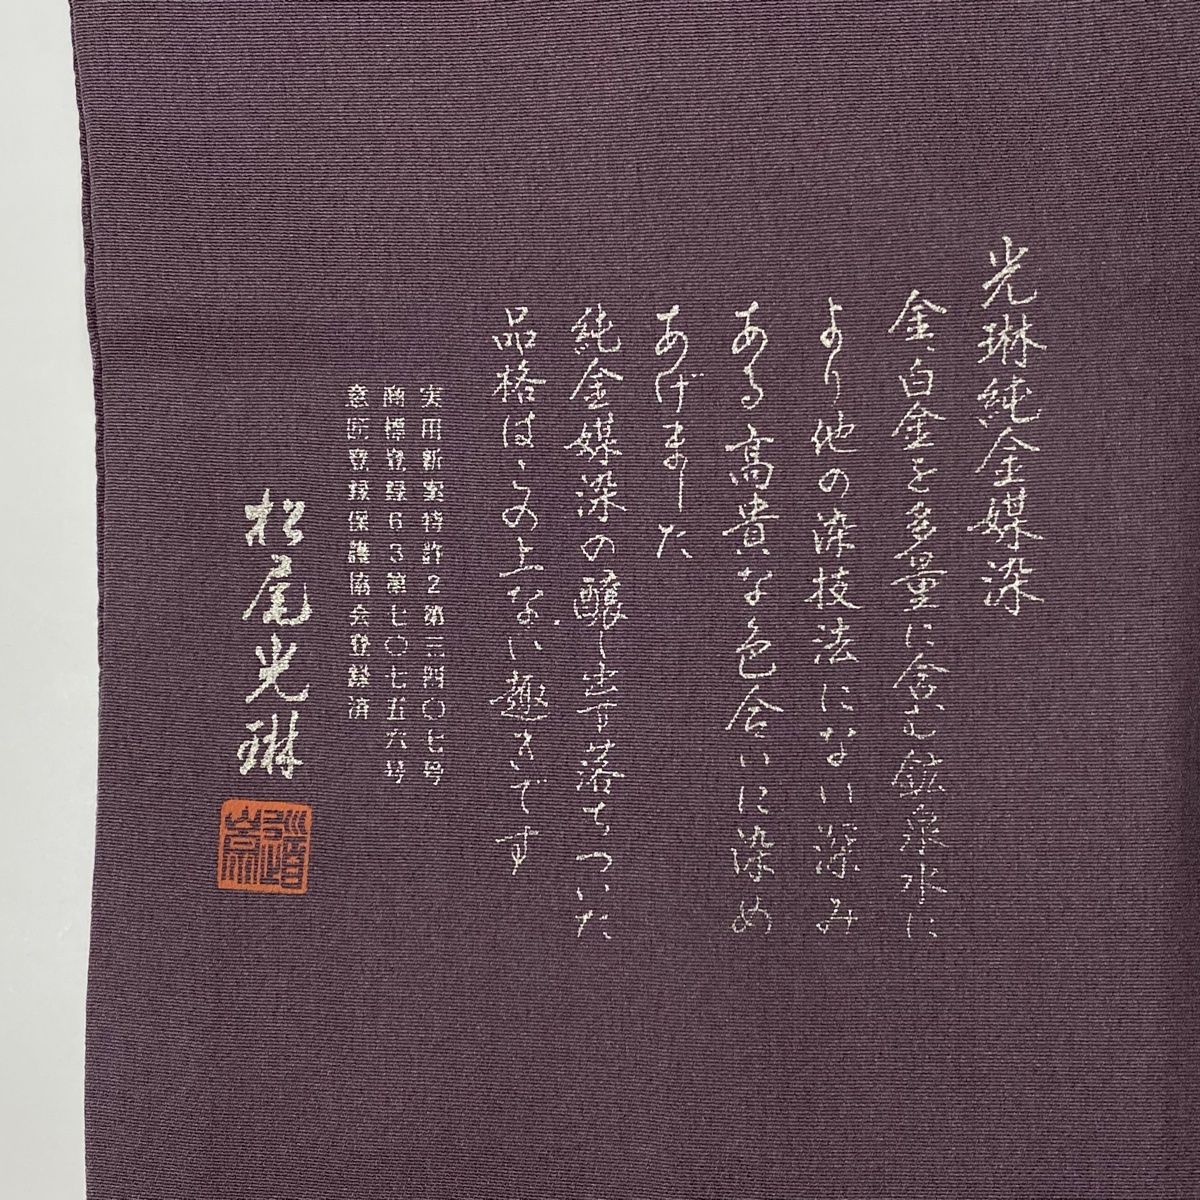 光琳純金媒染
金、白金を多量に含む鉱泉水に
より他の染技法にない深み
ある高貴な色合いに染め
あげました
純金媒染の醸し出す落ちついた
品格はこの上ない趣きです
実用新案特許2第三四〇七号
商標登録63第七〇七五六号
意匠登録保護協会登録済
松尾光琳